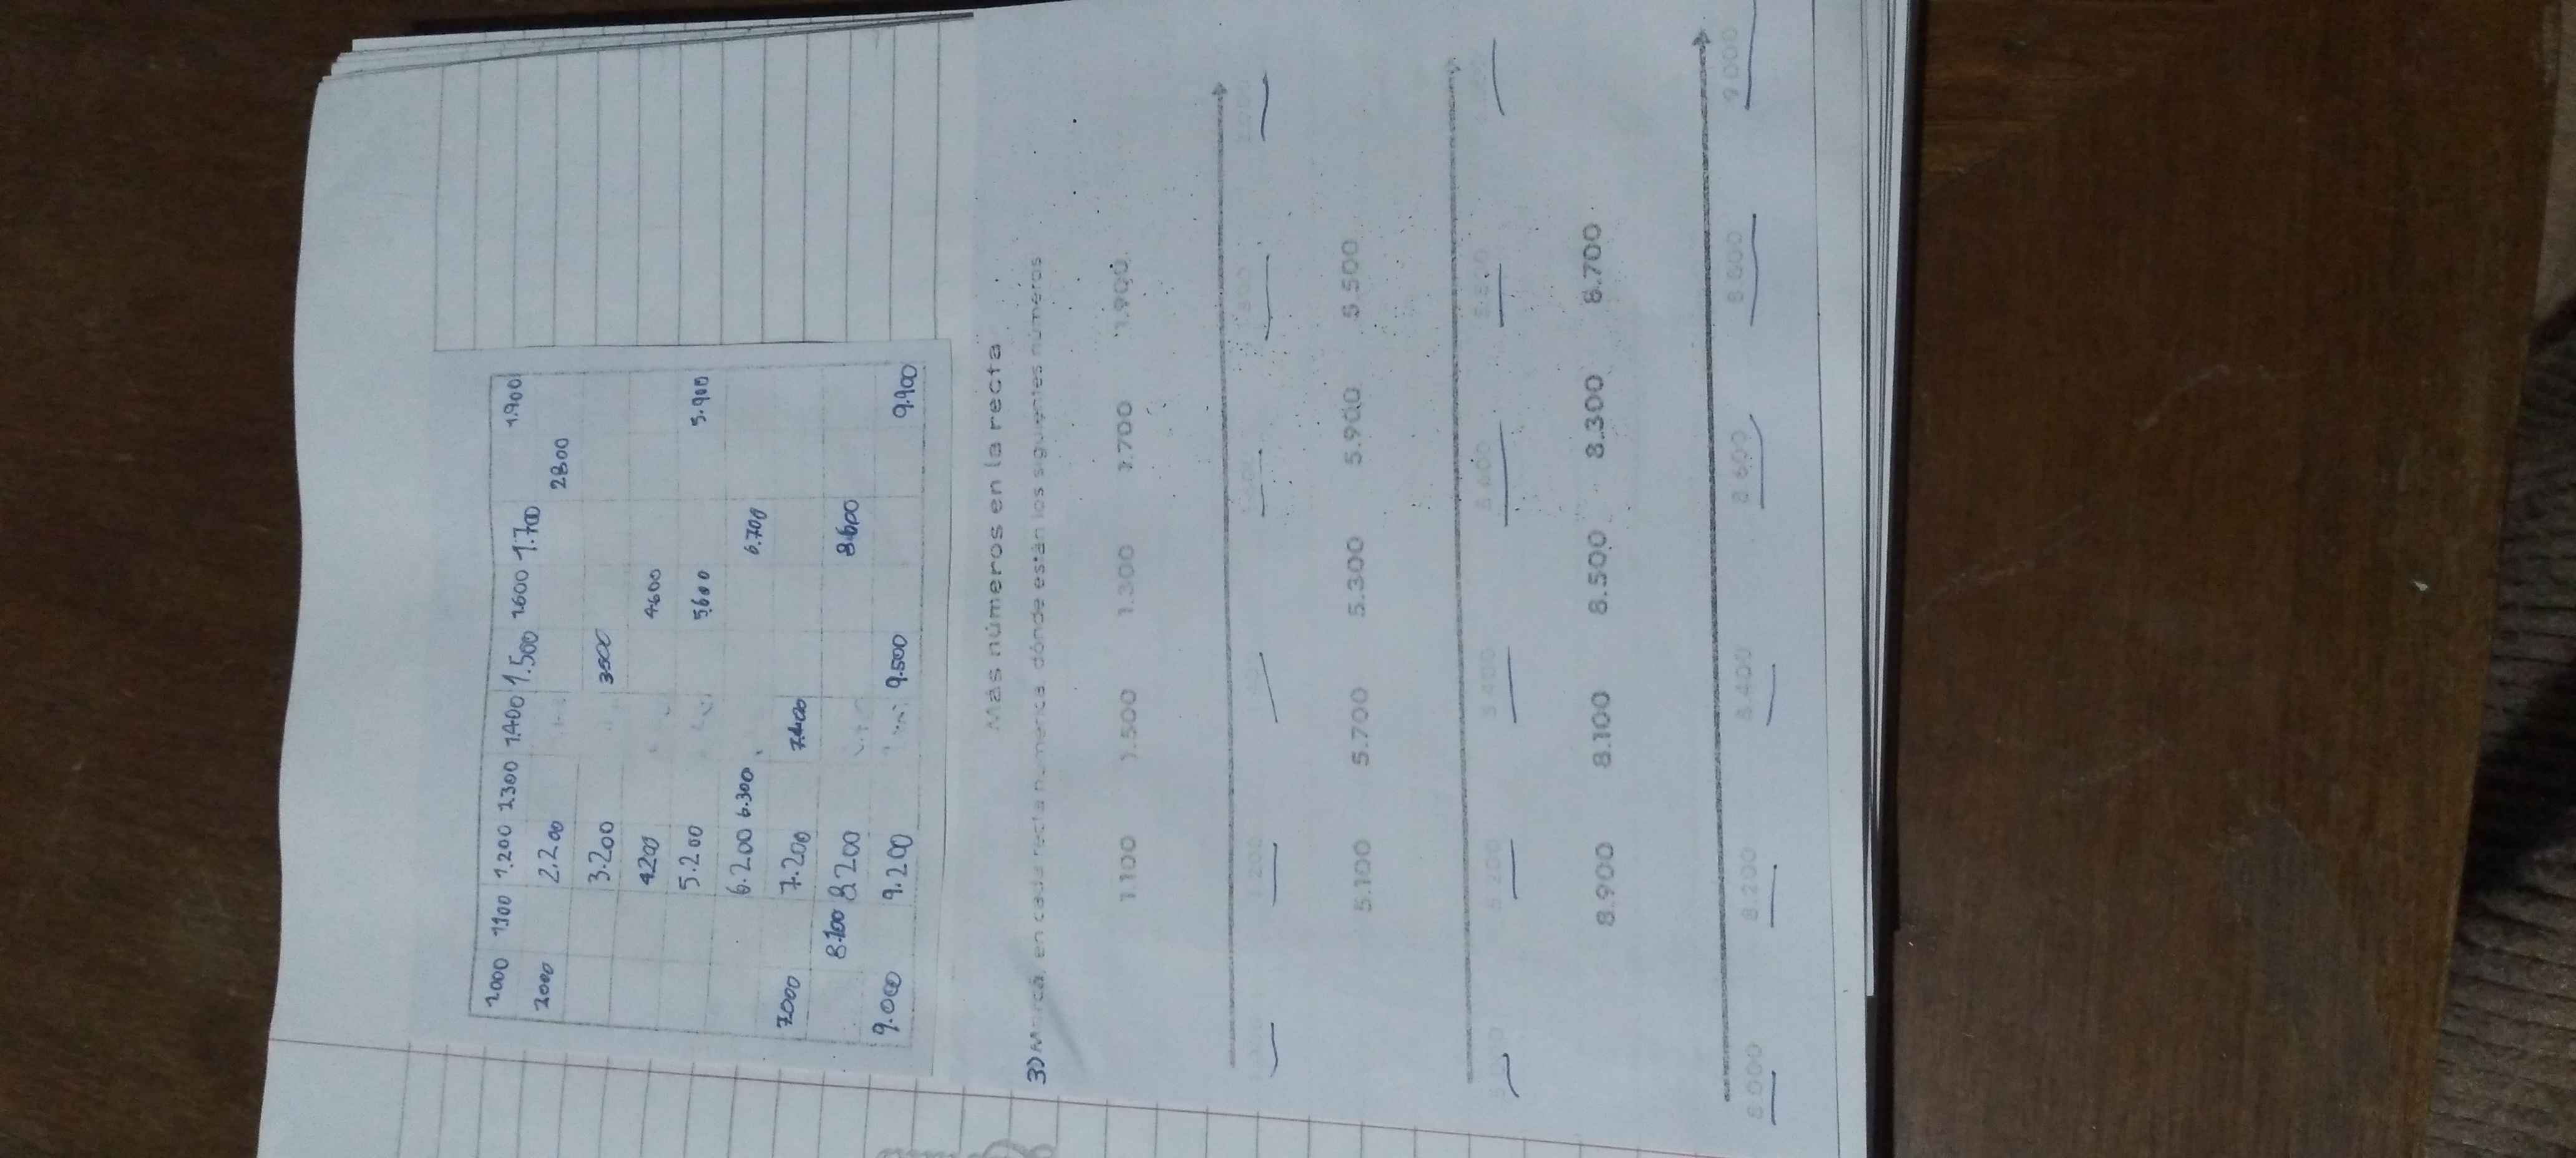 1.000 1.100 1.200 1.300 1.400 1.500 1.600 1.700 1.900
2000 2.200 2.800
3.200 3.500
4.200 4.600
5.200 5.600 5.900
6.200 6.300 6.700
7.000 7.200 7.400
8.100 8.200 8.600
9.000 9.200 9.500 9.900
Más números en la recta
3) Marcá, en cada recta numérica, dónde están los siguientes números
1.100 1.500 1.300 1.700 1.900
1.200 1.800
5.100 5.700 5.300 5.900 5.500
5.200 5.400 5.600 5.800
8.900 8.100 8.500 8.300 8.700
8.000 8.200 8.400 8.600 8.800 9.000